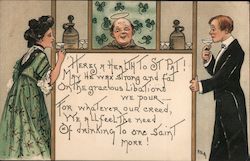 Here's a Health to St Pat!
May he wax strong and fat
On the gracious libations
we pour,
For whatever our creed,
We all feel the need
Of drinking to one Saint
more!